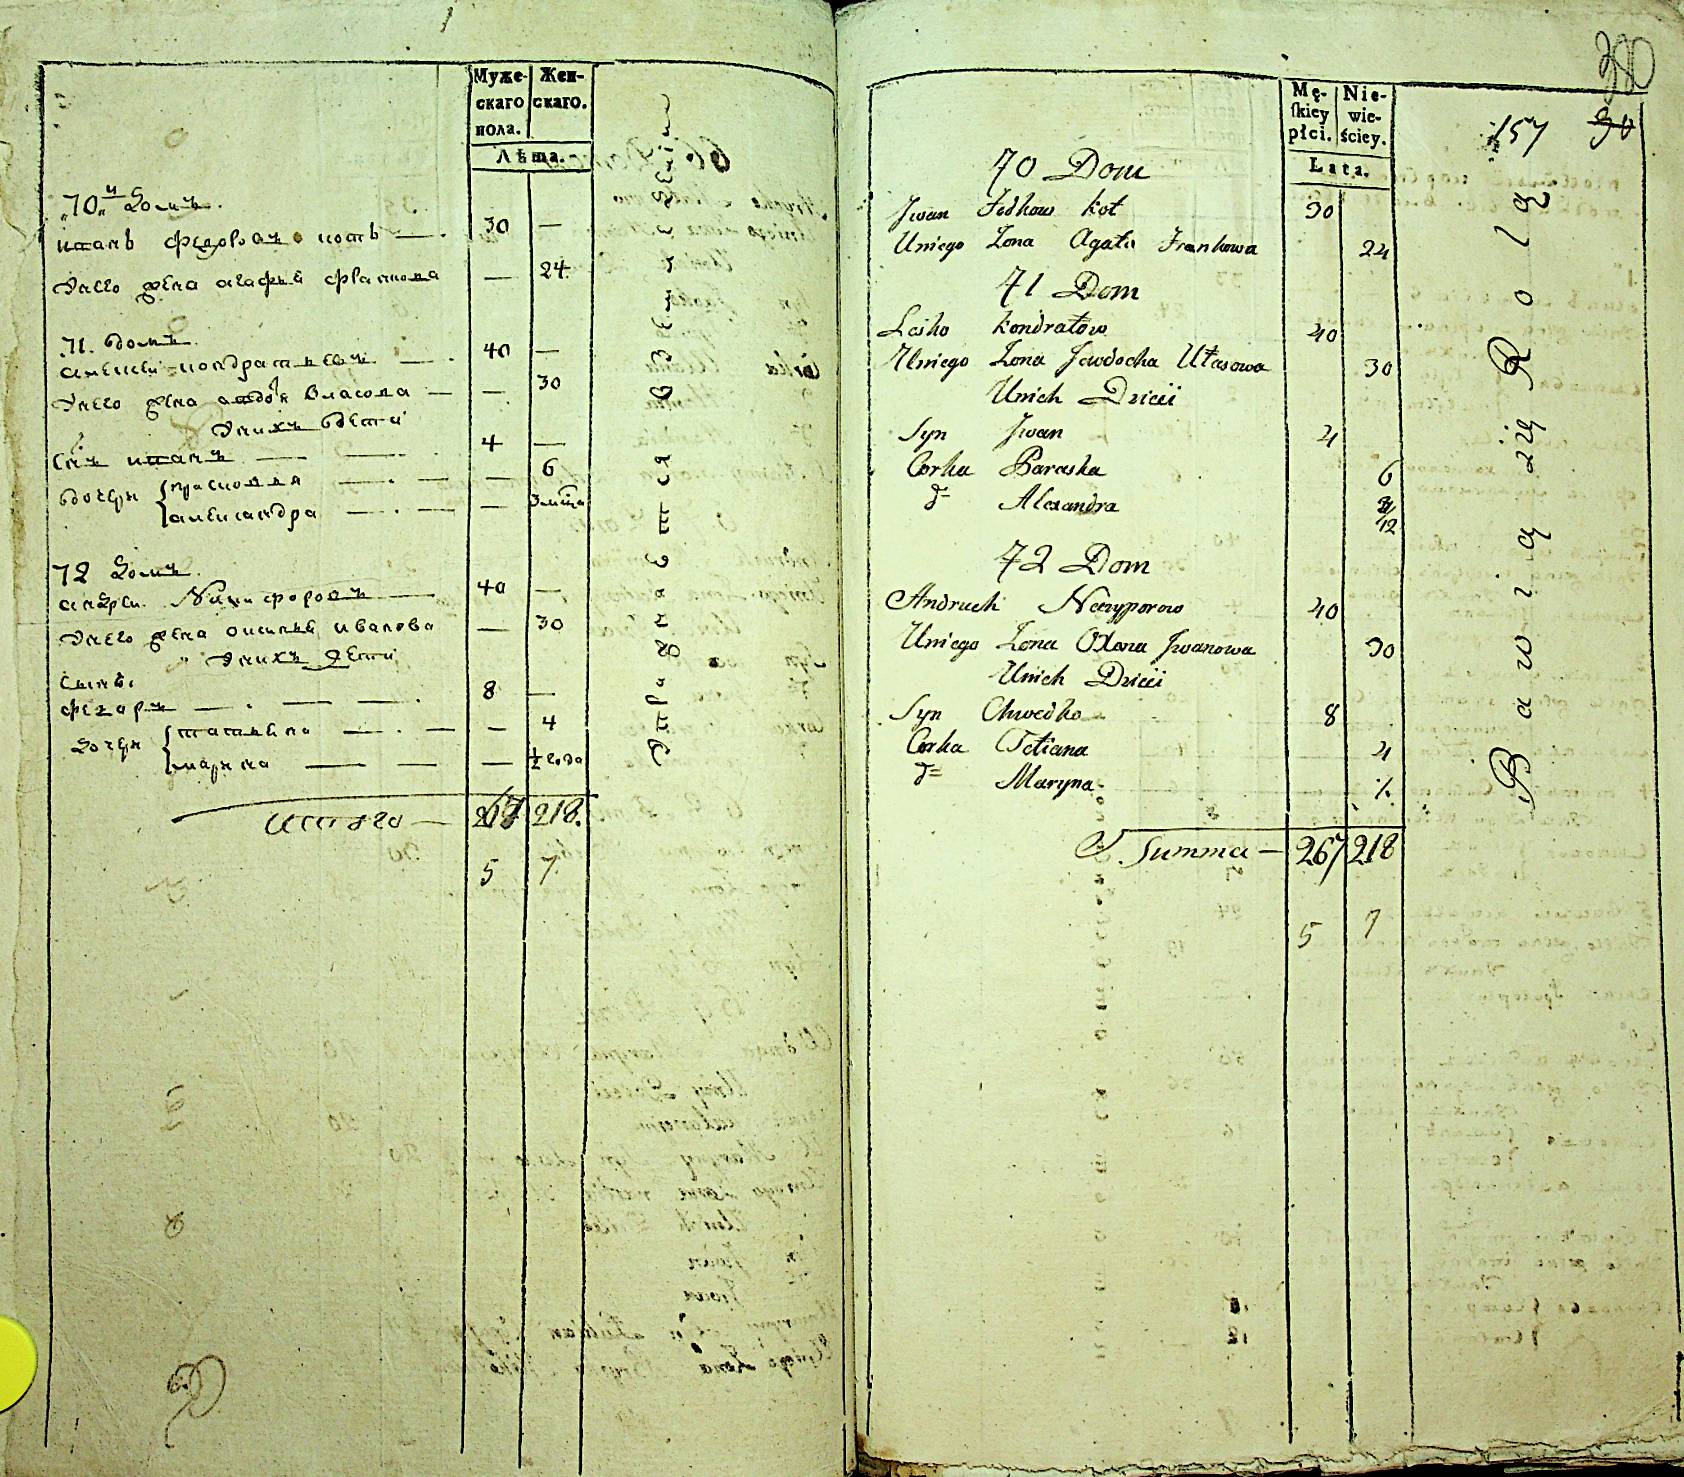 Муже-
скаго
пола.
Жен-
скаго.
Лѣта.
„70„й домъ.
иванъ федоровъ котъ — 30 —
Унего жена агафья франкова — 24
71. домъ.
алексей кондратьевъ — 40 —
Унего жена авдотья власова — — 30
Унихъ дѣти
Сынъ иванъ — 4 —
дочери { прасковья — — 6
александра — — 3 мѣсяца
72 домъ.
андрей Никифоровъ — 40 —
Унего жена оксинья иванова — 30
Унихъ дѣти
сынъ
федоръ — — — 8 —
дочери { татьяна — — — 4
марина — — — ½ года
Итого — 267 218.
5 7
380
157 90
Mę-
skiey
płci.
Nie-
wie-
ściey.
Lata.
70 Dom
Jwan Fedkow Kot 30
Uniego Zona Agata Frankowa 24
71 Dom
Lesko Kondratow 40
Uniego Zona Jewdocha Ułasowa 30
Unich Dzieci
Syn Jwan 4
Corka Paraska 6
d= Alexandra 3/12
72 Dom
Andruch Neczyporow 40
Uniego Zona Oxana Jwanowa 30
Unich Dzieci
Syn Chwedko 8
Corka Tetiana 4
d= Maryna ½
Summa — 267 218
5 7